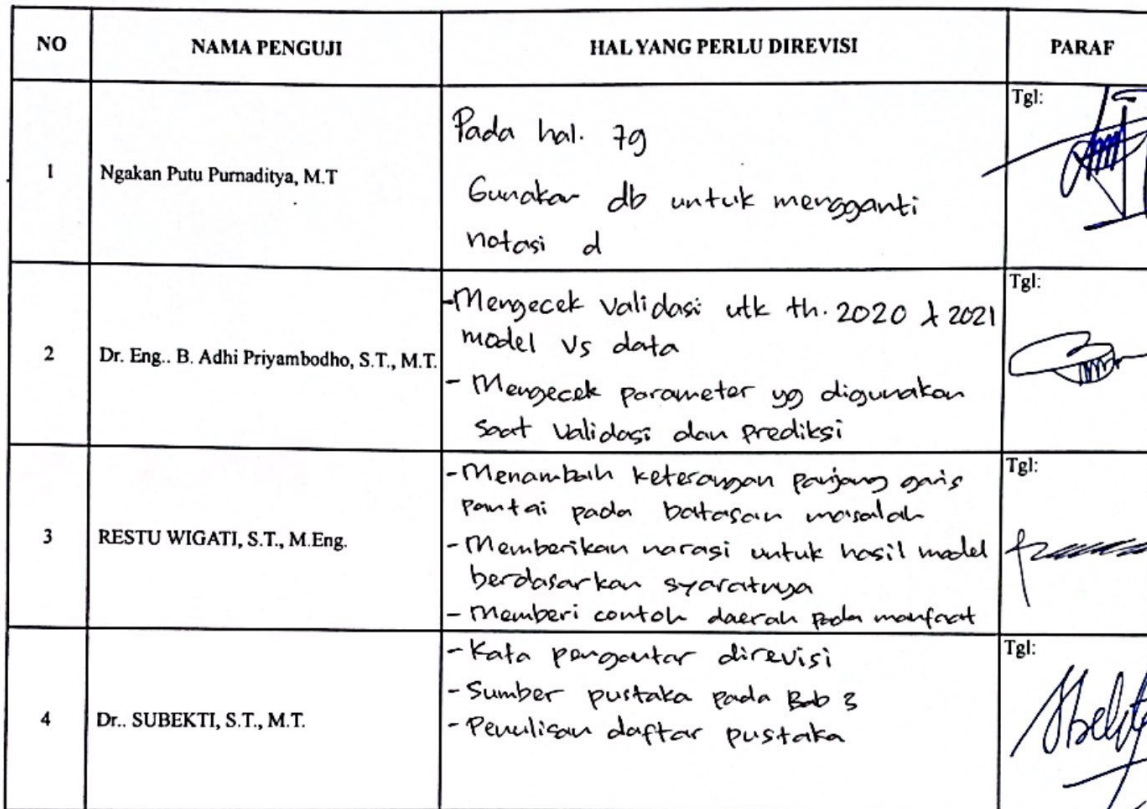 NO NAMA PENGUJI HAL YANG PERLU DIREVISI PARAF
1 Ngakan Putu Purnaditya, M.T
Pada hal. 79
Gunakan db untuk mengganti
notasi d
Tgl:
2 Dr. Eng.. B. Adhi Priyambodho, S.T., M.T.
-Mengecek validasi utk th. 2020 & 2021
model vs data
- Mengecek parameter yg digunakan
saat validasi dan prediksi
Tgl:
3 RESTU WIGATI, S.T., M.Eng.
-Menambah keterangan panjang garis
pantai pada batasan masalah
-Memberikan narasi untuk hasil model
berdasarkan syaratnya
-Memberi contoh daerah pada manfaat
Tgl:
4 Dr.. SUBEKTI, S.T., M.T.
-Kata pengantar direvisi
-Sumber pustaka pada Bab 3
-Penulisan daftar pustaka
Tgl: